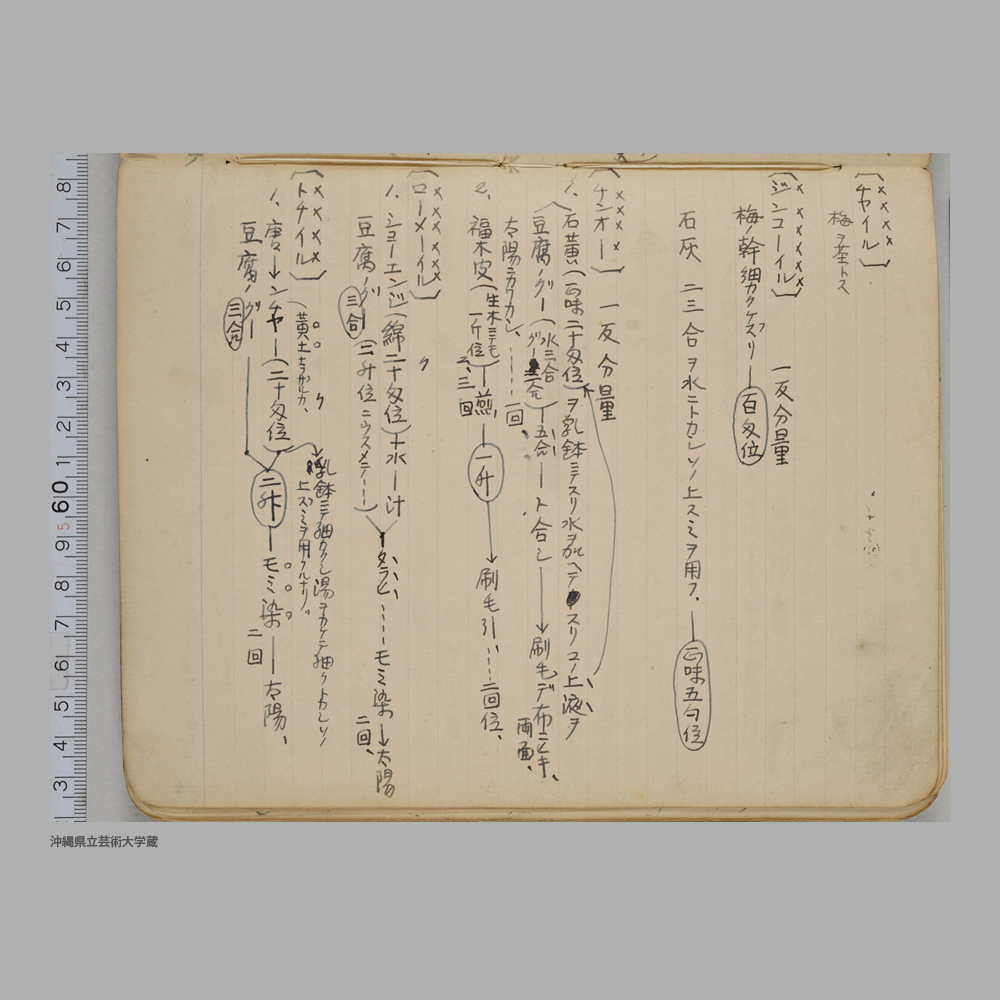 (チヤイル)
梅ヲ茶トス
(ジンコーイル) 一反分量
梅ノ幹細カクケズリ─百匁位
石灰 二三合ヲ水ニトカシソノ上スミヲ用フ、─正味五勺位
(チンオー) 一反分量
1. 石黄(正味二十匁位)ヲ乳鉢ニテスリ水ヲ加ヘテスリコノ上液ヲ
豆腐ノグー(水三合 グー二合)─五合─ト合シ─→刷毛デ布ニヒキ、両面、
太陽ニカワカシ、……一回、
2. 福木皮(生木ニテモ一斤位)─煎、─一升─→刷毛引、…二回位、
二、三回
(ローメーイル) 〃
1. シヨーエンジ(綿二十匁位)+水─汁
豆腐ノグー三合(二升位ニウスメテ──)
タラシ、……モミ染─→太陽
二回、
(トチイル) 〃
(黄土ナラザルカ、
1. 唐─→ンチヤー(二十匁位)
乳鉢ニテ細カクシ湯ヲカケテ細クトカシソノ
上ズミヲ用フルナリ。
豆腐ノグー三合
二升─モミ染─太陽、
二回
8 7 6 5 4 3 2 1 60 9 8 7 6 5 4 3
5
沖縄県立芸術大学蔵